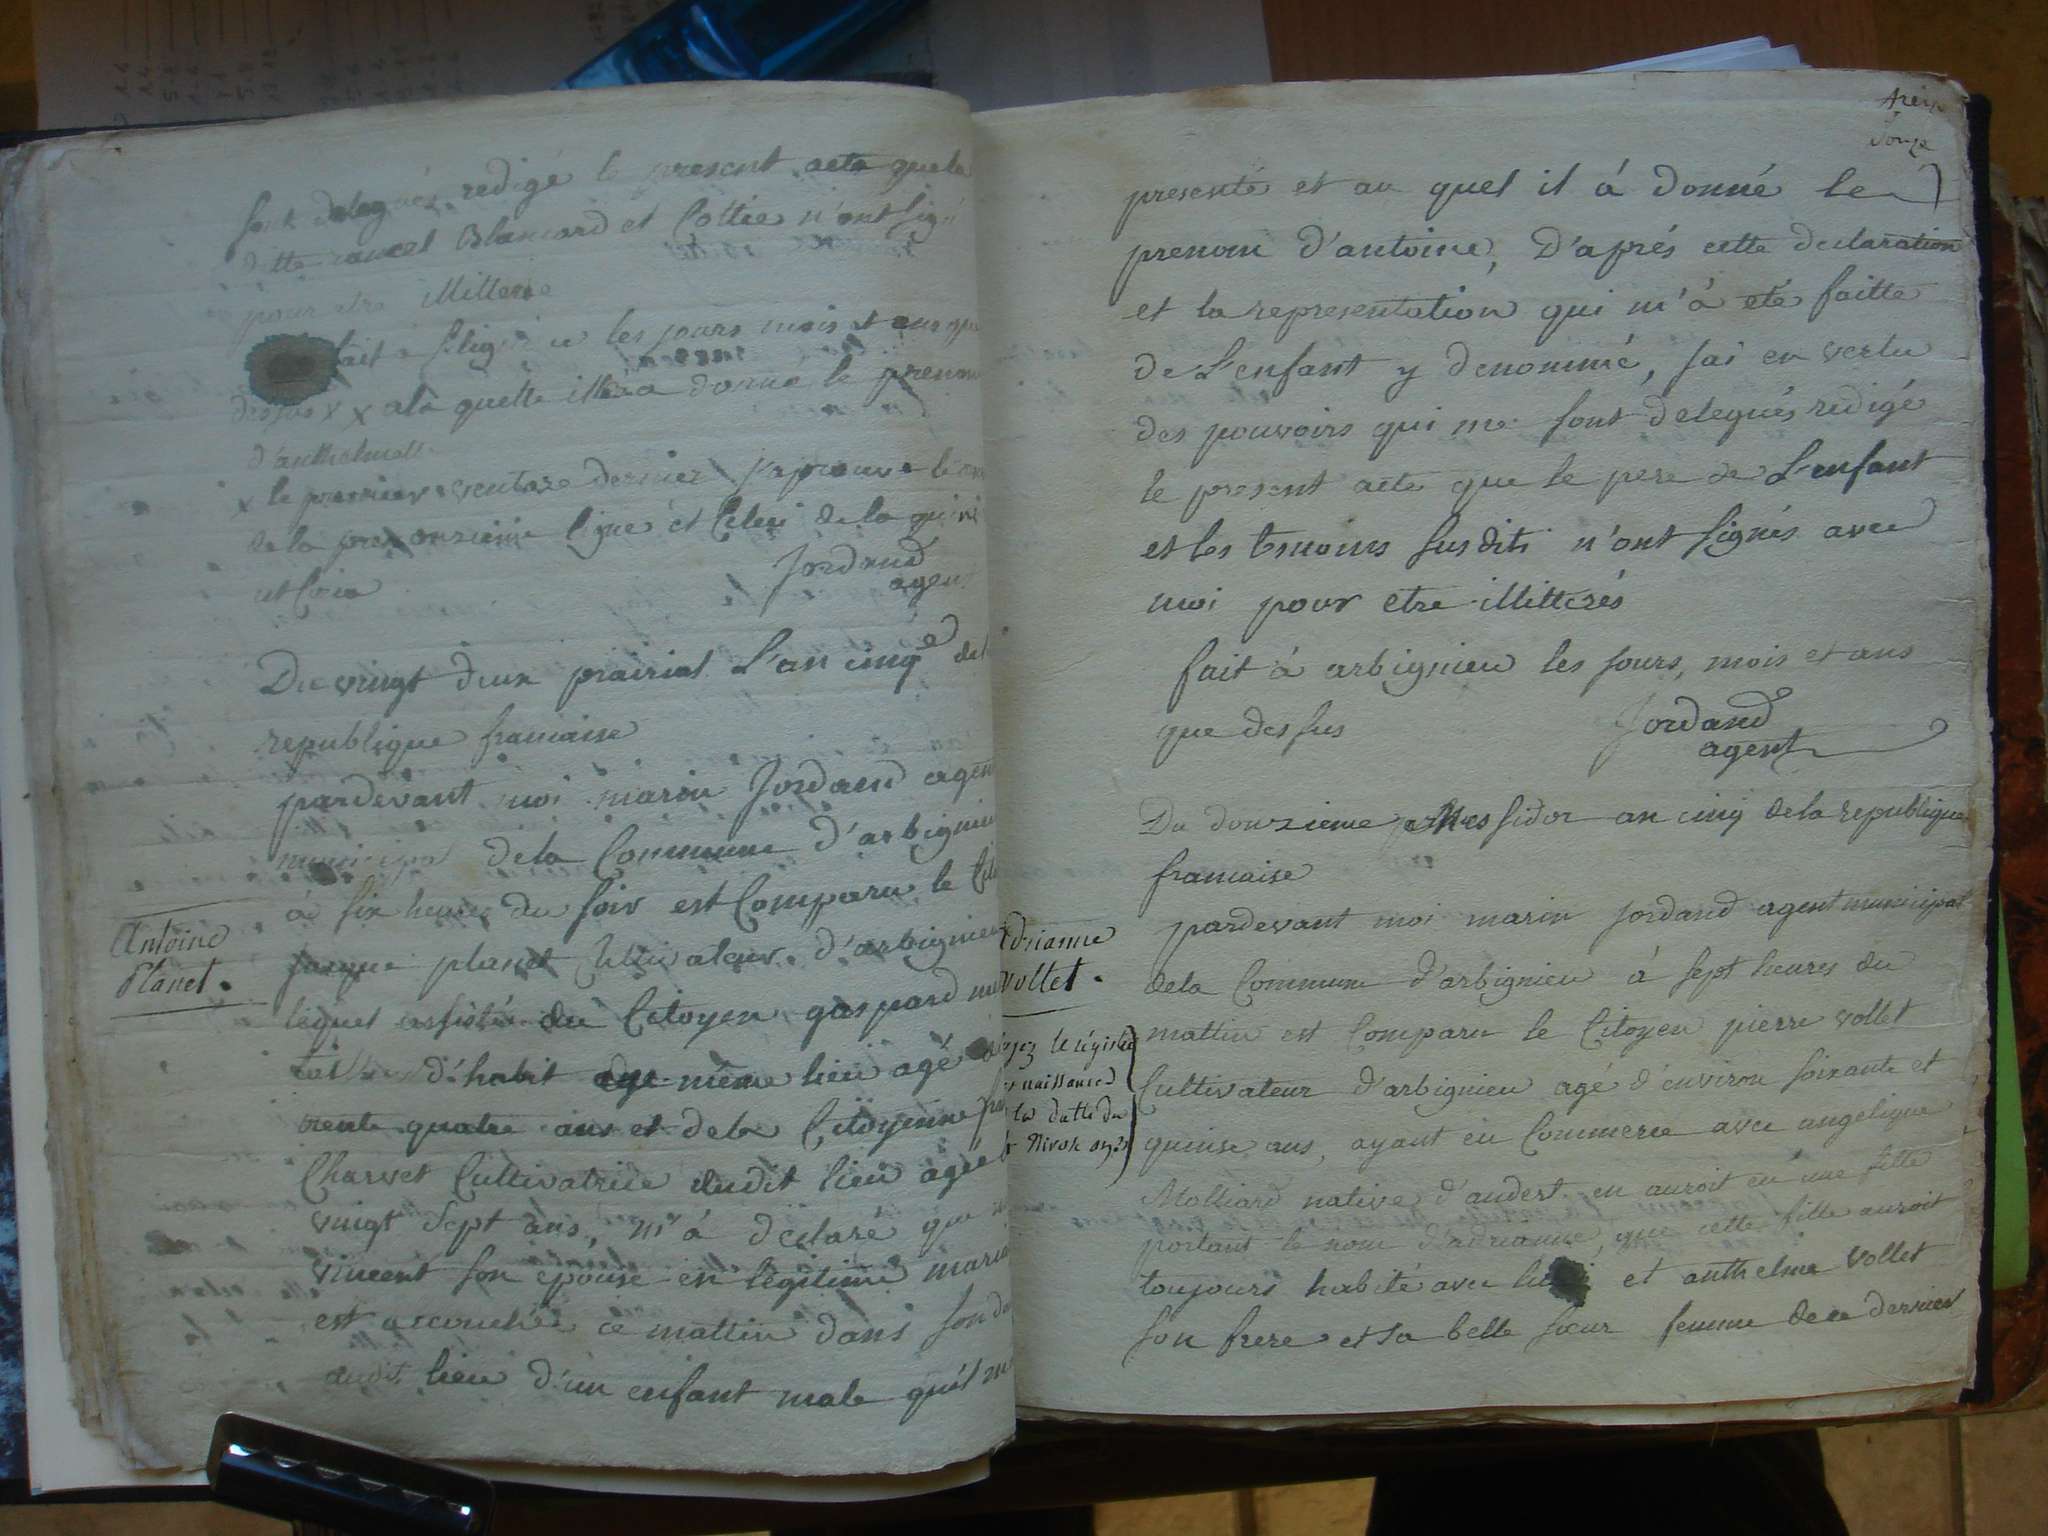 sont delegués redigé le present acte que la
ditte rancel Blancard et Cottée n'ont signé
pour etre illiterée
fait a les jours mois et ans que
dessus x x a la quelle il a donné le prenom
d'anthelmette
x le premier ventose dernier j'aprouve le
de la onzieme ligne et Celui de la
et Croix Jordand
agent
Du vingt deux prairial L'an cinqe de l
republique francaise
pardevant moi marin Jordand agent
municipal de la Commune d'arbignieu
à six heures du soir est Comparu le
jacque planet Cultivateur d'arbignieu
lequel assisté du Citoyen gaspard
d'habit même lieu agé
trente quatre ans et de la Citoyenne
Charvet Cultivatrice dudit lieu agée
vingt Sept ans, m'à declaré que
vincent son epouse en legitime maria
est accouchée ce mattin dans son
audit lieu d'un enfant male qu'il m
Antoine
Planet.
presenté et au quel il à donné le
prenom d'antoine, D'aprés cette declaration
et la representation qui m'à eté faitte
de L'enfant y denommé, jai en vertu
des pouvoirs qui me sont delegués redigé
le present acte que le pere de L'enfant
et les temoins susdits n'ont signés avec
moi pour etre illitterés
fait à arbignieu les jours, mois et ans
que dessus Jordand
agent
Du douzieme Messidor an cinq de la republique
francaise
pardevant moi marin jordand agent municipal
de la Commune d'arbignieu à sept heures du
mattin est Comparu le Citoyen pierre vollet
Cultivateur d'arbignieu agé d'environ soixante et
quinse ans, ayant eu Commerce avec angelique
Molliard native d'andert en auroit eu une fille
portant le nom d'adrianne, que cette fille auroit
toujours habité avec lui et anthelme Vollet
son frere et sa belle sœur femme de ce dernier
drianne
vollet.
le régistre
naissance
la datte du
Nivose an